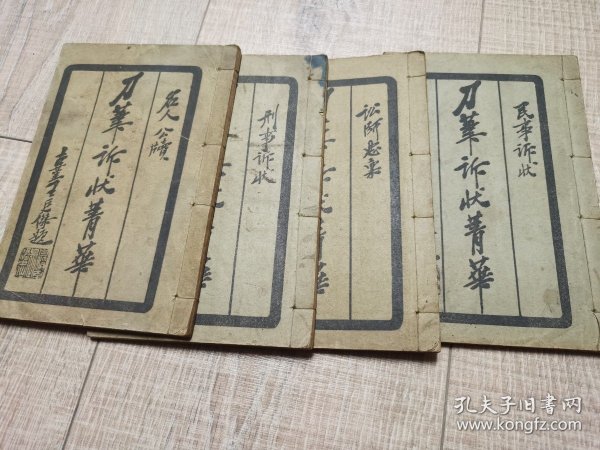 名人公牍
刀筆訴狀菁華
刑事訴狀
訟師惡稟
民事訴狀
刀筆訴狀菁華
孔夫子旧书网
www.kongfz.com